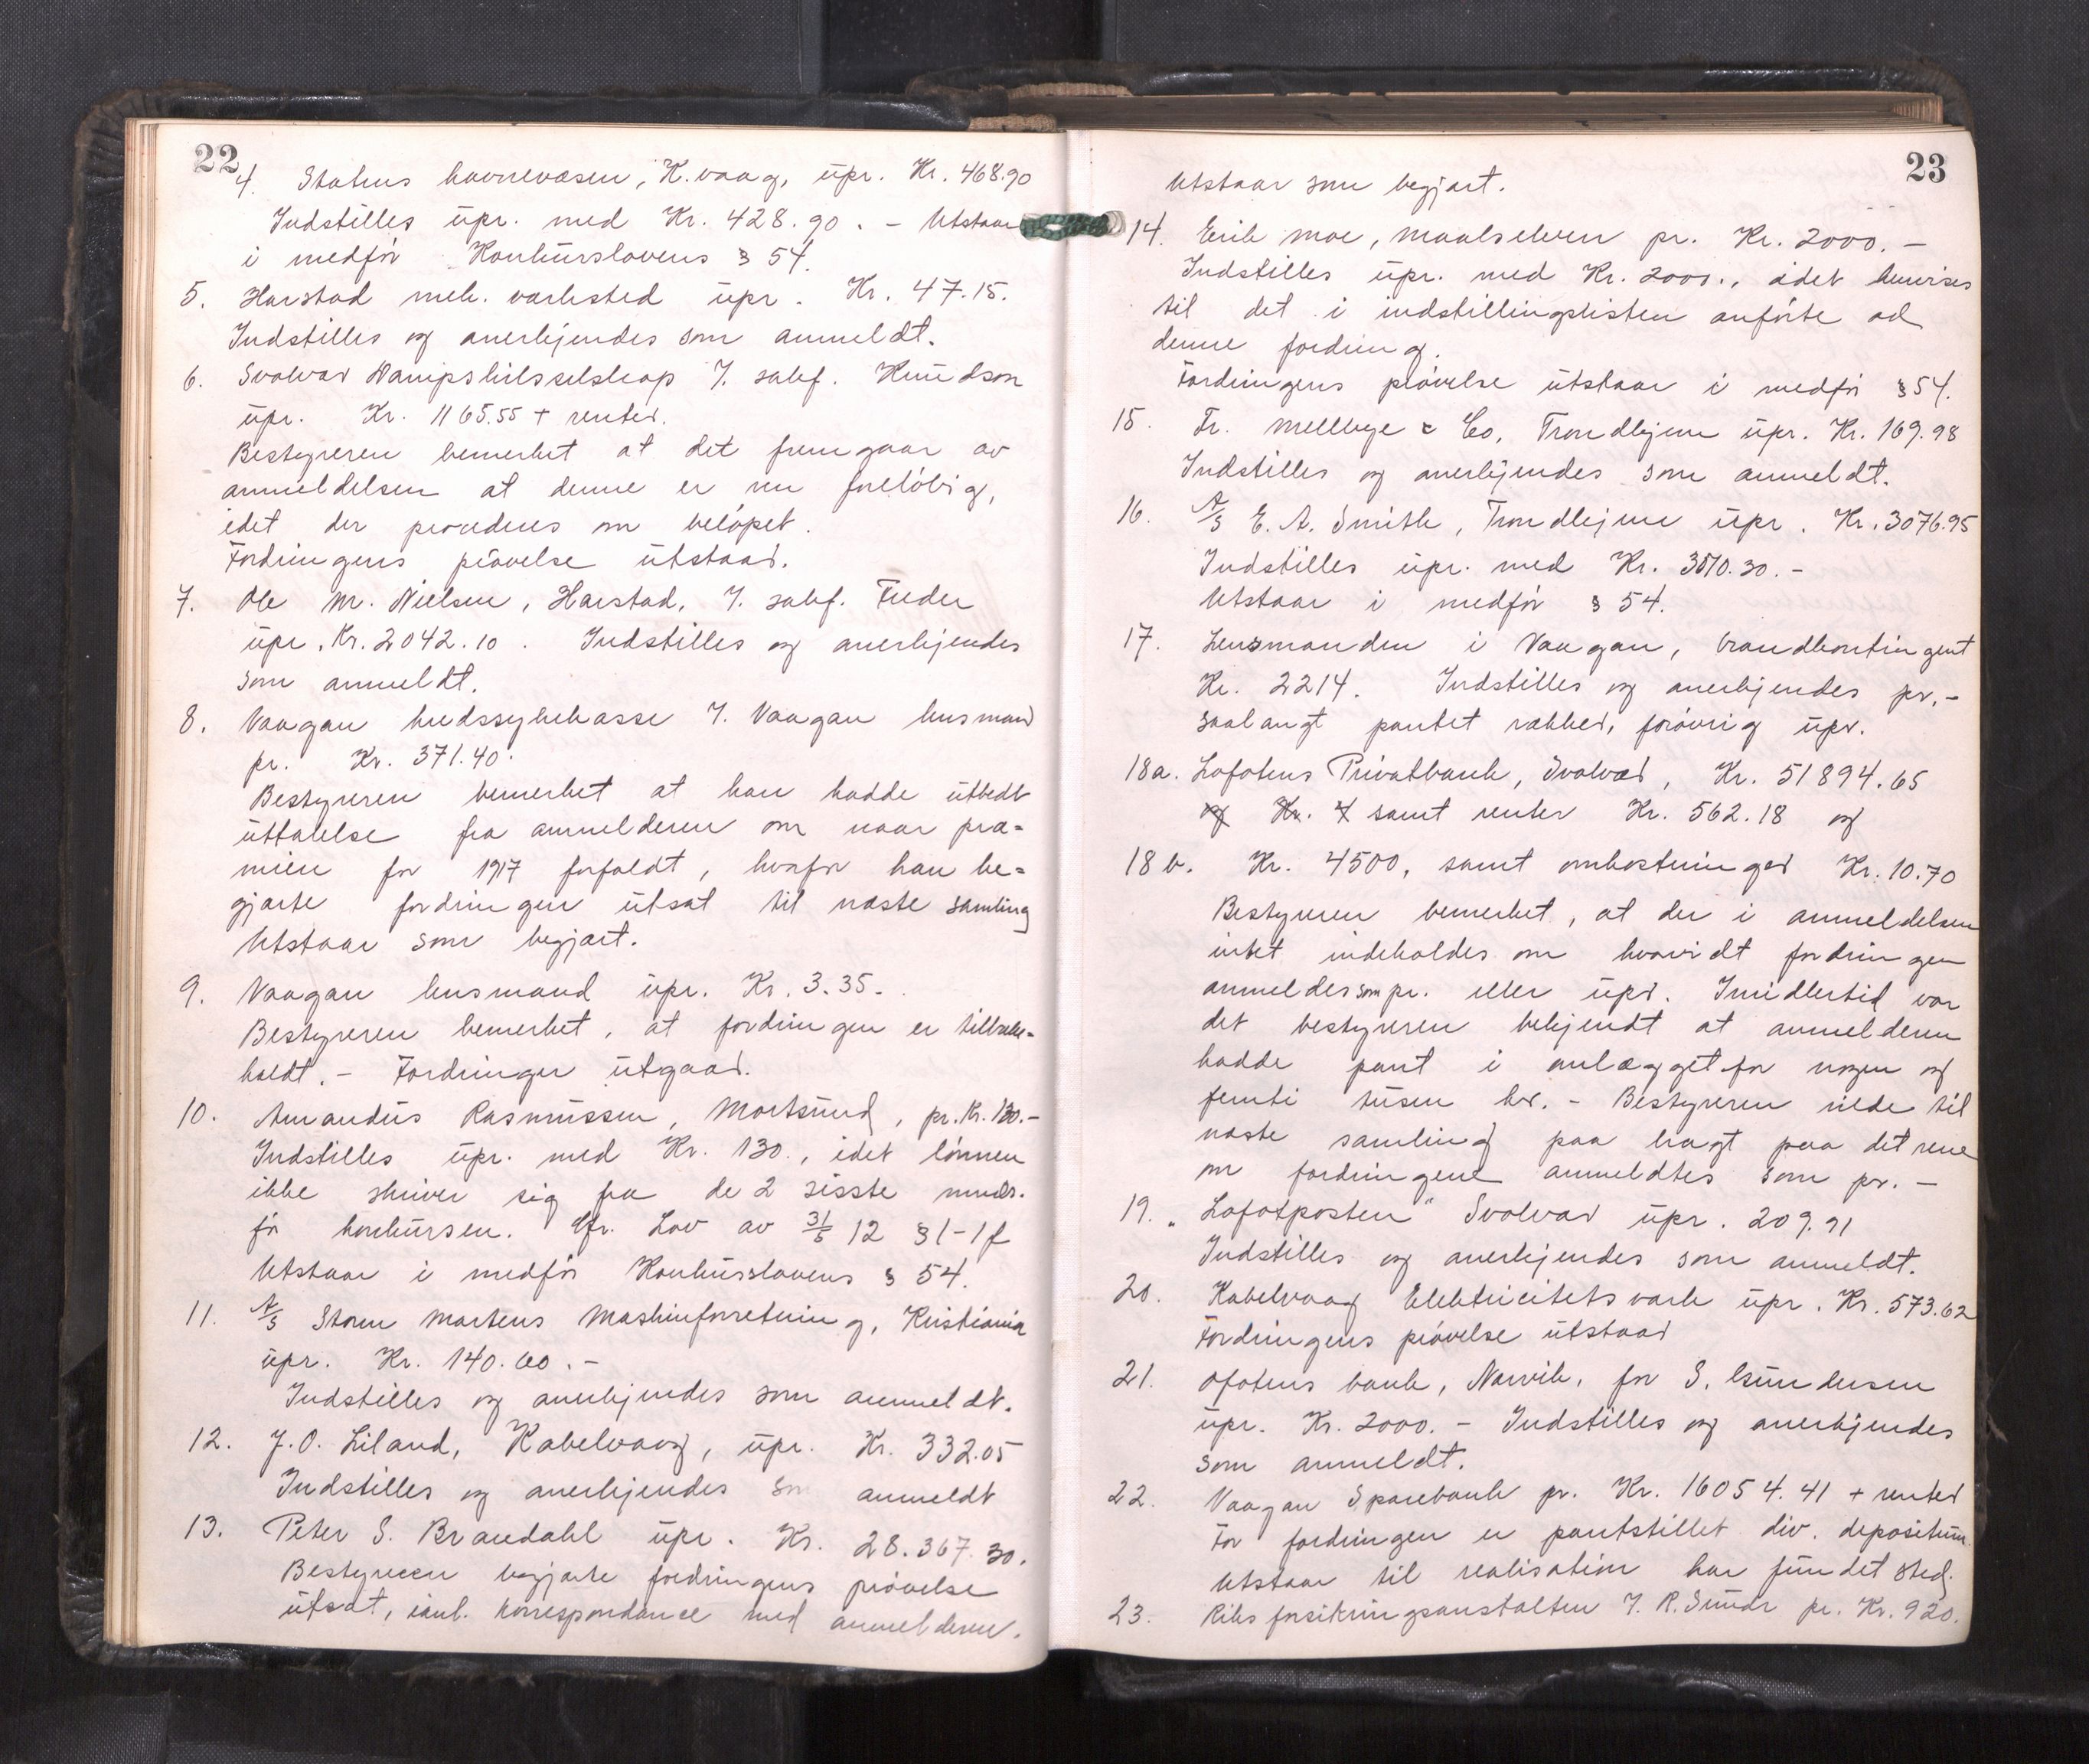 22
4. Statens havnevæsen, K.vaag, upr. Kr. 468.90
Indstilles upr. med Kr. 428.90. - Utstaar
i medfór Konkurslovens § 54.
5. Harstad mek. verksted upr. Kr. 47.15.
Indstilles og anerkjendes som anmeldt.
6. Svolvær Dampskibsselskap v. sakf. Knudson
upr. Kr. 1165.55 + renter.
Bestyreren bemerket at det fremgaar av
anmeldelsen at denne er kun foreløbig,
idet der procederes om beløpet.
Fordringens prøvelse utstaar.
7. Ole M. Nielsen, Harstad, v. sakf. Feeder
upr. Kr. 2042.10. Indstilles og anerkjendes
som anmeldt.
8. Vaagan kredssykekasse v. Vaagan lensmand
pr. Kr. 371.40.
Bestyreren bemerket at han hadde utbedt
uttalelse fra anmelderen om naar præ-
mien for 1917 forfaldt, hvorfor han be-
gjærte fordringen utsat til næste samling
Utstaar som begjært.
9. Vaagan lensmand upr. Kr. 3.35.
Bestyreren bemerket, at fordringen er tilbake-
kaldt. - Fordringen utgaar.
10. Amandus Rasmussen, Mortsund, pr. Kr. 130.-
Indstilles upr. med Kr. 130., idet lønnen
ikke skriver sig fra de 2 sisste mndr.
før konkursen. Cfr. Lov av 31/5 12 § 1-1f
Utstaar i medfór Konkurslovens § 54.
11. A/S Storm Martens Maskinforretning, Kristiania
upr. Kr. 140.60.-
Indstilles og anerkjendes som anmeldt.
12. J.O. Liland, Kabelvaag, upr. Kr. 332.05
Indstilles og anerkjendes som anmeldt
13. Peter S. Brandahl upr. Kr. 28.367.30.
Bestyreren begjærte fordringens prøvelse
utsat, ianl. korrespondanse med anmelderen.
23
Utstaar som begjært.
14. Erik Moe, Maalselven pr. Kr. 2000.-
Indstilles upr. med Kr. 2000., idet henvises
til det i indstillingslisten anførte ad
denne fordring.
Fordringens prøvelse utstaar i medfór § 54.
15. Fr. Mellbye & Co, Trondhjem upr. Kr. 169.98
Indstilles og anerkjendes som anmeldt.
16. A/S E. A. Smith, Trondhjem upr. Kr. 3076.95
Indstilles upr. med Kr. 3010.30.-
Utstaar i medfór § 54.
17. Lensmanden i Vaagan, brandkontingent
Kr. 2214. Indstilles og anerkjendes pr.-
saalangt pantet rækker, forøvrig upr.
18a. Lofotens Privatbank, Svolvær, Kr. 51894.65
og Kr. 4 samt renter Kr. 562.18 og
18 b. Kr. 4500, samt omkostninger Kr. 10.70
Bestyreren bemerket, at der i anmeldelsen
intet indeholdes om hvorvidt fordringen
anmeldes som pr. eller upr. Imidlertid var
det bestyreren bekjendt at anmelderen
hadde pant i anlægget for nogen og
femti tusen kr. - Bestyreren vilde til
næste samling faa bragt paa det rene
om fordringene anmeldtes som pr. -
19. "Lofotposten" Svolvær upr. 209.91
Indstilles og anerkjendes som anmeldt.
20. Kabelvaag Elektricitetsverk upr. Kr. 573.62
Fordringens prøvelse utstaar
21. Ofotens bank, Narvik, for S. Gundersen
upr. Kr. 2000.- Indstilles og anerkjendes
som anmeldt.
22. Vaagan Sparebank pr. Kr. 16054.41 + renter
For fordringen er pantstillet div. depositum.
Utstaar til realisation har fundet sted.
23. Riksforsikringsanstalten v. R. Sundr pr. Kr. 920.